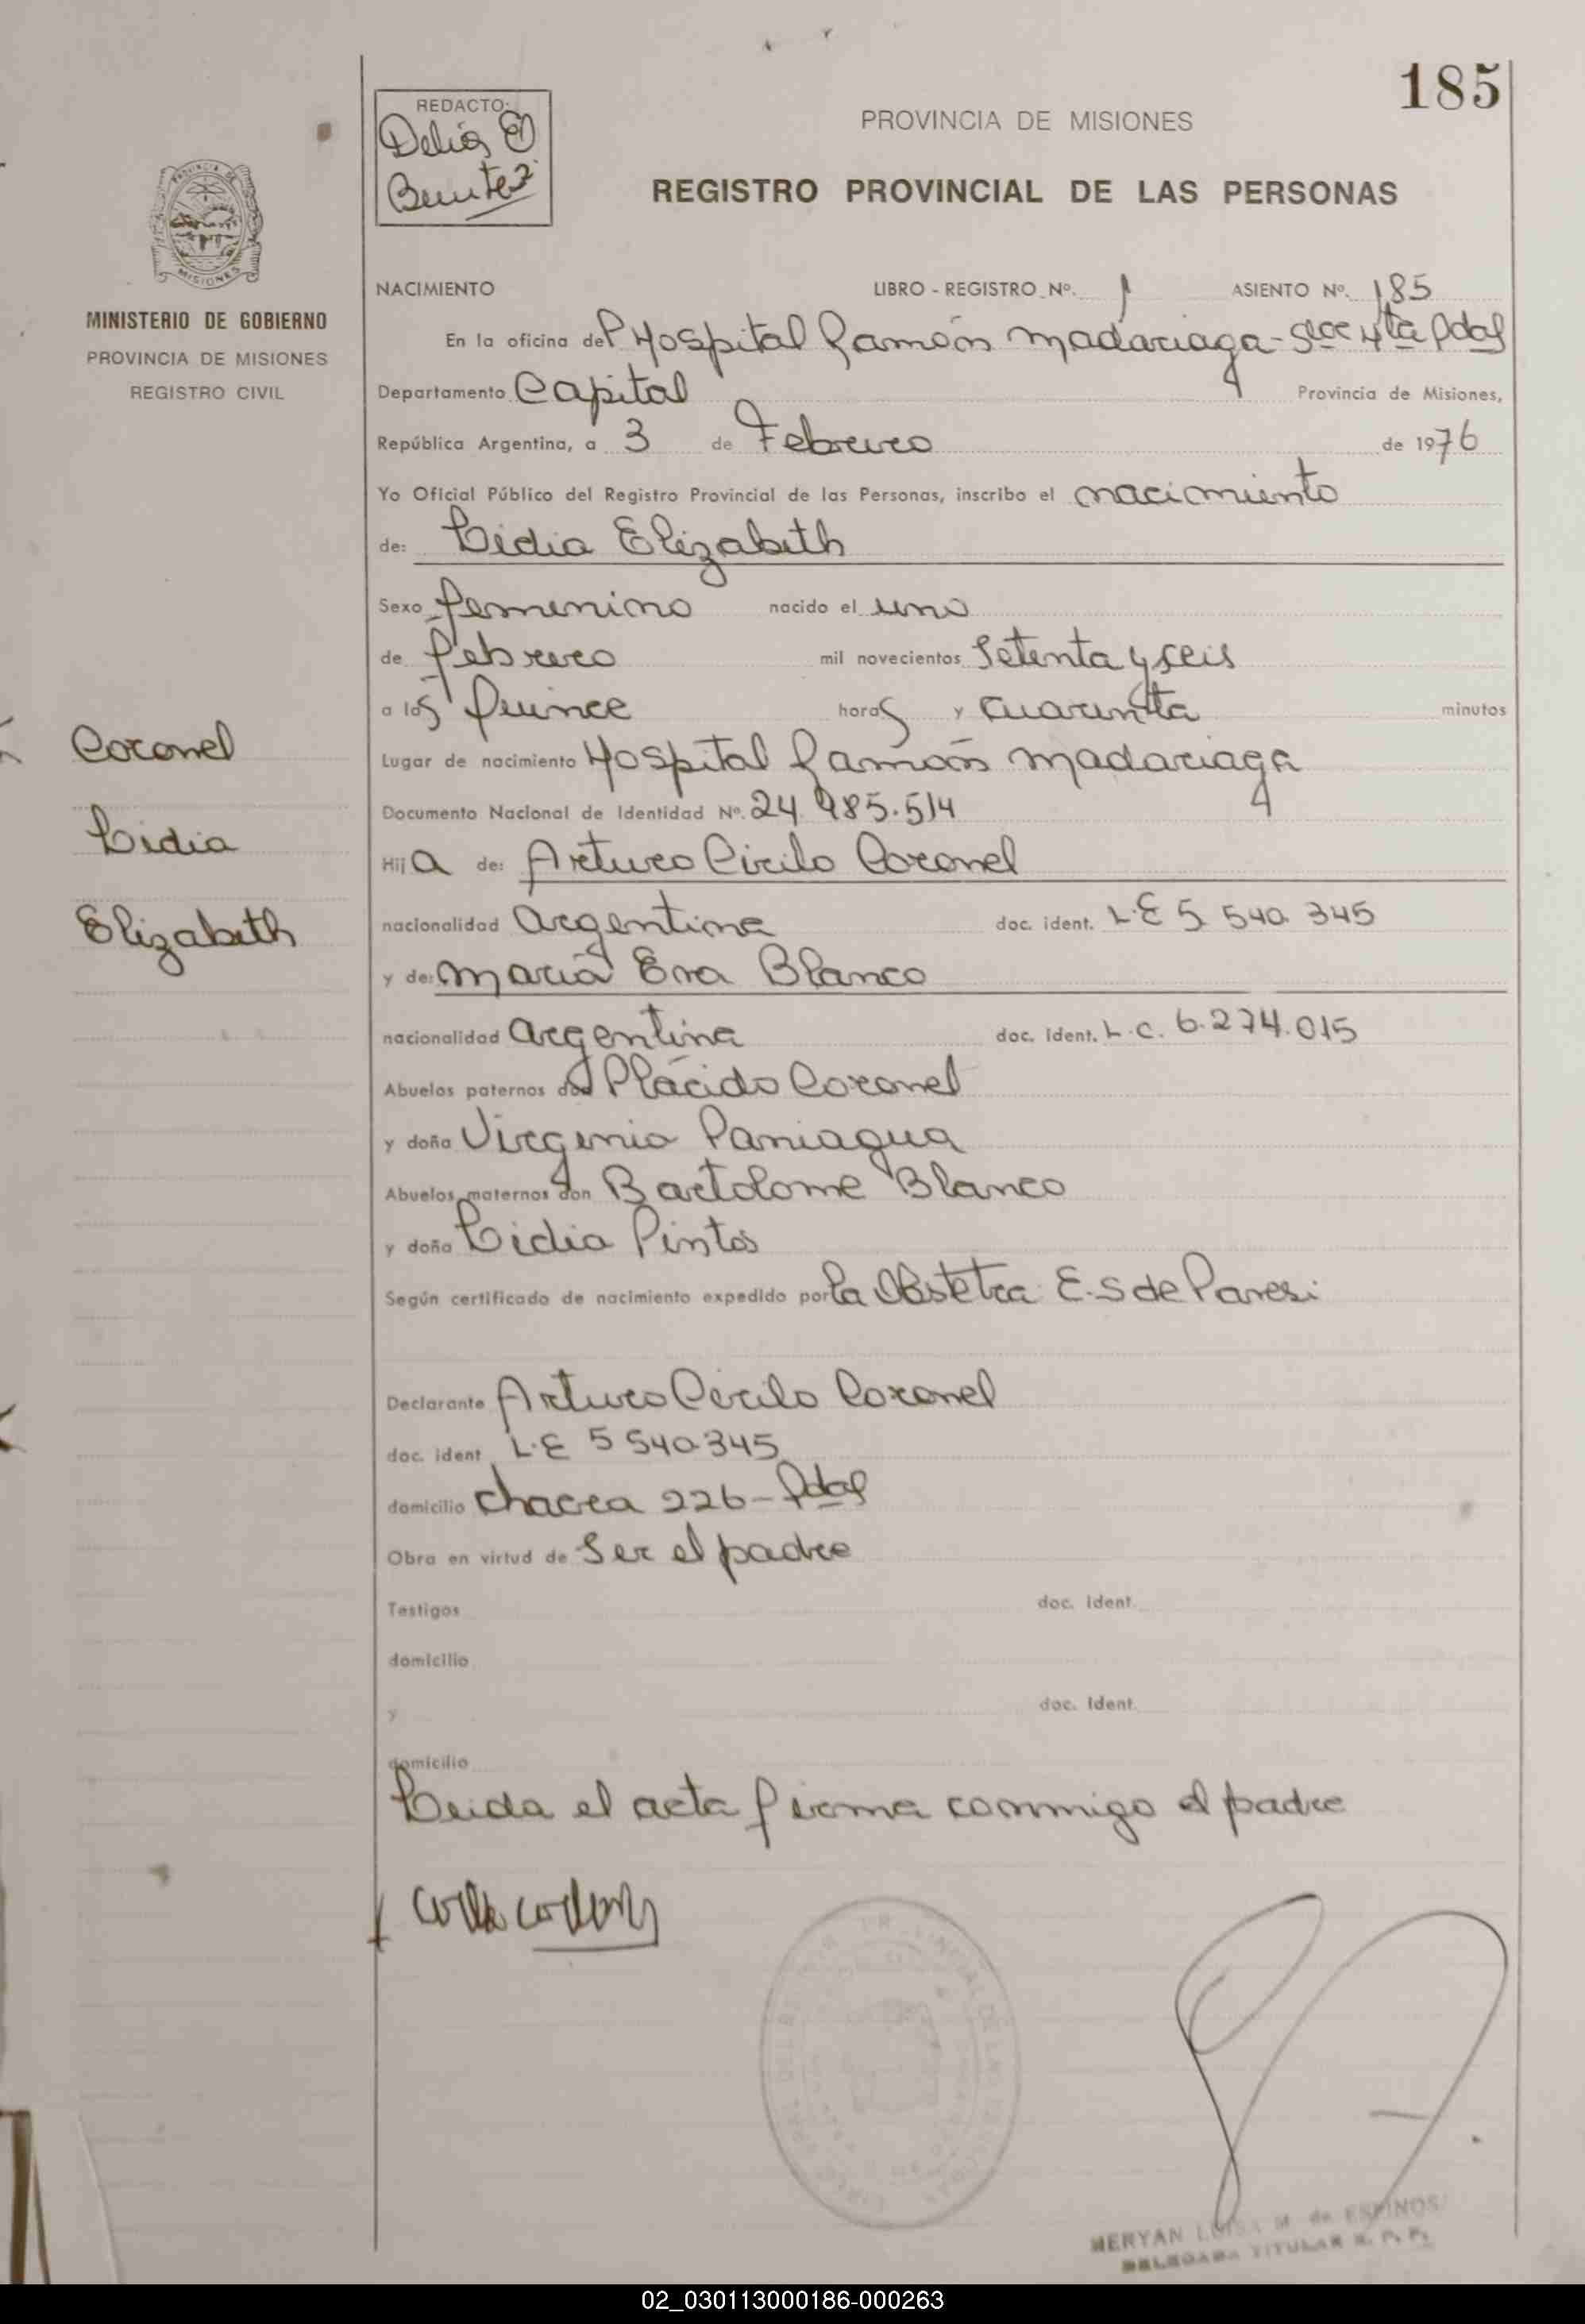 185
REDACTO:
Delia
Benitez
PROVINCIA DE MISIONES
REGISTRO PROVINCIAL DE LAS PERSONAS
PROVINCIA DE
MISIONES
MINISTERIO DE GOBIERNO
PROVINCIA DE MISIONES
REGISTRO CIVIL
NACIMIENTO LIBRO - REGISTRO Nº. 1 ASIENTO Nº. 185
En la oficina del Hospital Ramón Madariaga - Secc 4ta Pdas
Departamento Capital Provincia de Misiones,
República Argentina, a 3 de Febrero de 1976
Yo Oficial Público del Registro Provincial de las Personas, inscribo el nacimiento
de: Lidia Elizabeth
Sexo femenino nacido el uno
de febrero mil novecientos setenta y seis
a las quince horas y cuarenta minutos
Coronel
Lidia
Elizabeth
Lugar de nacimiento Hospital Ramón Madariaga
Documento Nacional de Identidad Nº. 24.985.514
Hija de: Arturo Cirilo Coronel
nacionalidad argentina doc. ident. L.E 5.540.345
y de: Maria Eva Blanco
nacionalidad argentina doc. ident. L.C. 6.274.015
Abuelos paternos don Plácido Coronel
y doña Virginia Paniagua
Abuelos maternos don Bartolome Blanco
y doña Lidia Pintos
Según certificado de nacimiento expedido por la Obstetra E.S de Paresi
Declarante Arturo Cirilo Coronel
doc. ident. L.E 5.540.345
domicilio chacra 226 - Pdas
Obra en virtud de ser el padre
Testigos doc. ident.
domicilio
y doc. ident.
domicilio
Leida el acta firma conmigo el padre
MERYAN LUISA M. de ESPINOS
DELEGADA TITULAR R. P. P.
02_030113000186-000263